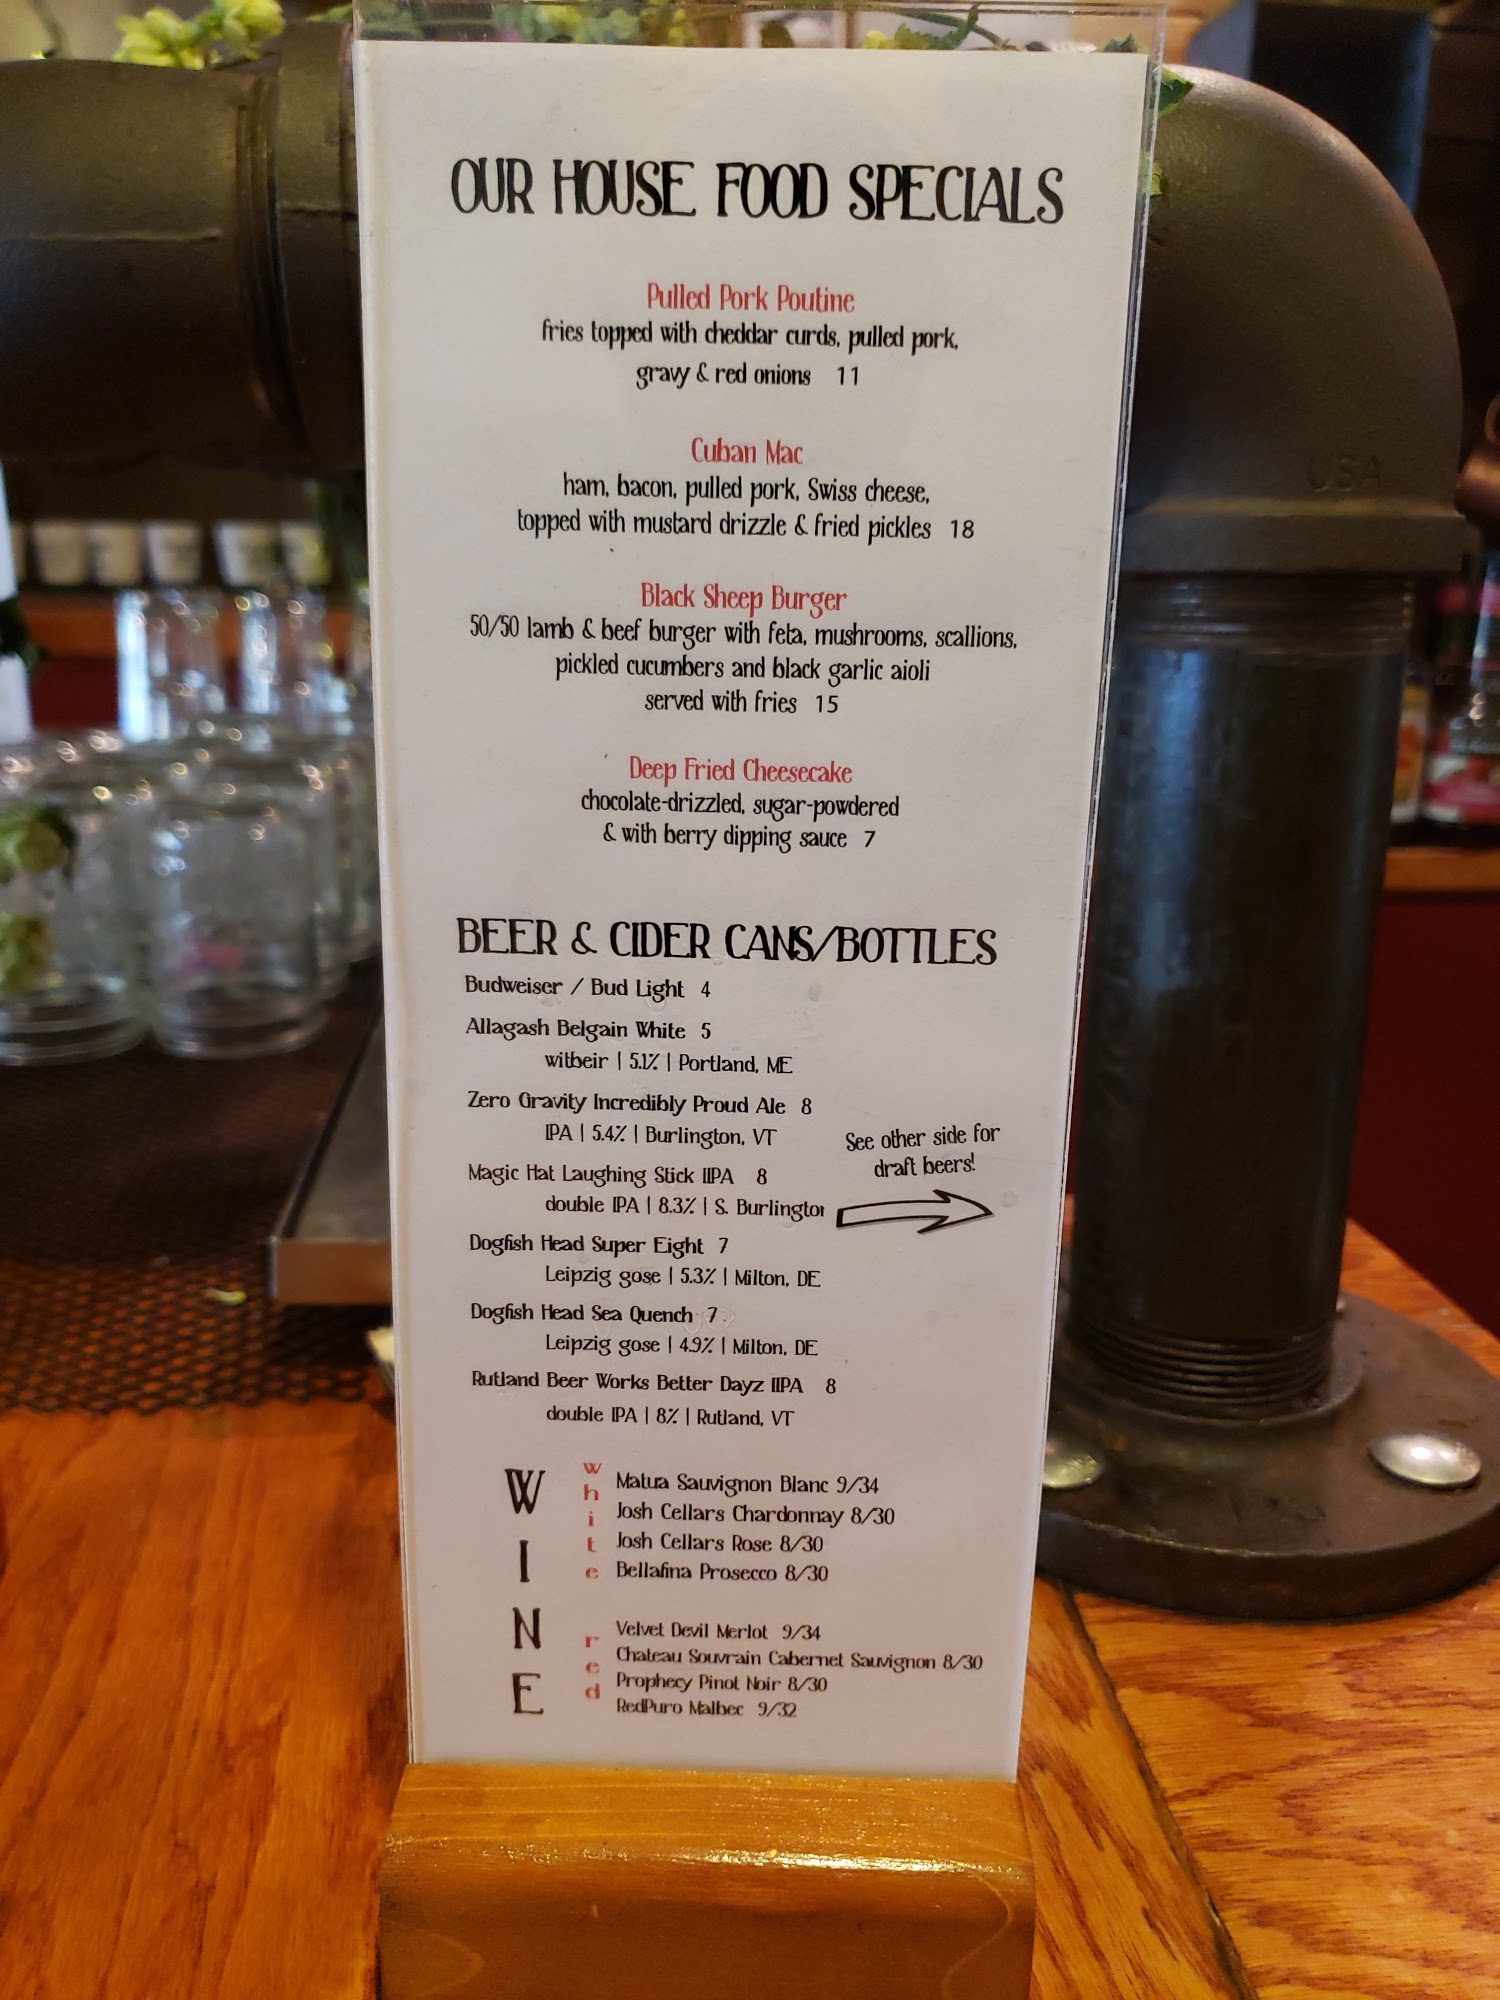 OUR HOUSE FOOD SPECIALS
Pulled Pork Poutine
fries topped with cheddar curds, pulled pork,
gravy & red onions 11
Cuban Mac
ham, bacon, pulled pork, Swiss cheese,
topped with mustard drizzle & fried pickles 18
Black Sheep Burger
50/50 lamb & beef burger with feta, mushrooms, scallions,
pickled cucumbers and black garlic aioli
served with fries 15
Deep Fried Cheesecake
chocolate-drizzled, sugar-powdered
& with berry dipping sauce 7
BEER & CIDER CANS/BOTTLES
Budweiser / Bud Light 4
Allagash Belgain White 5
witbeir | 5.1% | Portland, ME
Zero Gravity Incredibly Proud Ale 8
IPA | 5.4% | Burlington, VT
Magic Hat Laughing Stick IIPA 8
double IPA | 8.3% | S. Burlington
See other side for
draft beers!
Dogfish Head Super Eight 7
Leipzig gose | 5.3% | Milton, DE
Dogfish Head Sea Quench 7
Leipzig gose | 4.9% | Milton, DE
Rutland Beer Works Better Dayz IIPA 8
double IPA | 8% | Rutland, VT
WINE
white
Matua Sauvignon Blanc 9/34
Josh Cellars Chardonnay 8/30
Josh Cellars Rose 8/30
Bellafina Prosecco 8/30
red
Velvet Devil Merlot 9/34
Chateau Souvrain Cabernet Sauvignon 8/30
Prophecy Pinot Noir 8/30
RedPuro Malbec 9/32
USA